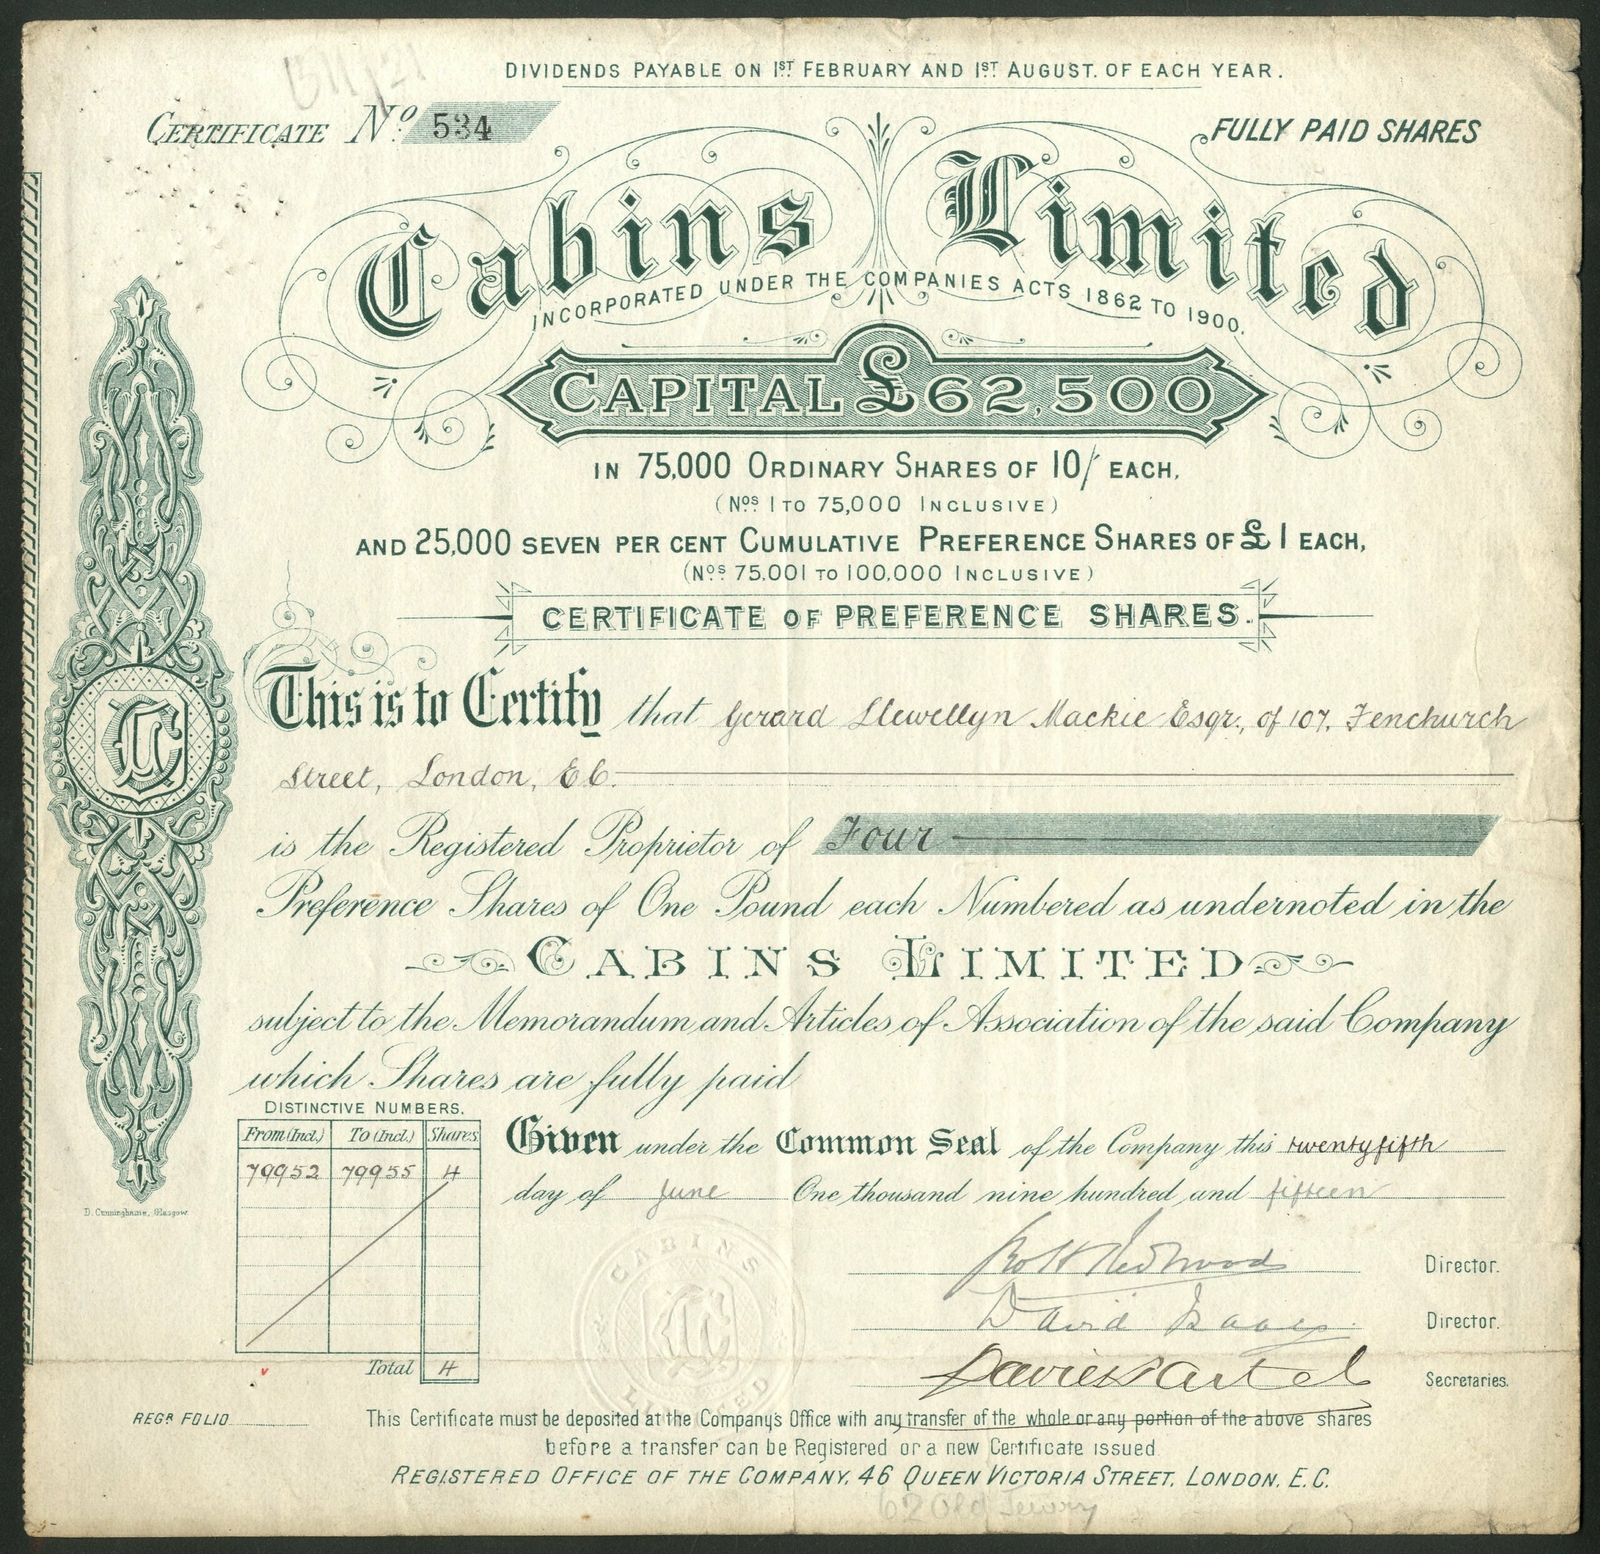 DIVIDENDS PAYABLE ON 1ST FEBRUARY AND 1ST AUGUST. OF EACH YEAR.
CERTIFICATE No. 534
FULLY PAID SHARES
Cabins Limited
INCORPORATED UNDER THE COMPANIES ACTS 1862 TO 1900.
CAPITAL £62,500
IN 75,000 ORDINARY SHARES OF 10/ EACH,
(Nos 1 TO 75,000 INCLUSIVE)
AND 25,000 SEVEN PER CENT CUMULATIVE PREFERENCE SHARES OF £1 EACH,
(Nos 75.001 TO 100,000 INCLUSIVE)
CERTIFICATE OF PREFERENCE SHARES.
This is to Certify that Gerard Llewellyn Mackie Esqr., of 107, Fenchurch
Street, London, E C.
is the Registered Proprietor of Four
Preference Shares of One Pound each Numbered as undernoted in the
CABINS LIMITED
subject to the Memorandum and Articles of Association of the said Company
which Shares are fully paid
DISTINCTIVE NUMBERS.
From (Incl.) To (Incl.) Shares
79952 79955 4
Total 4
Given under the Common Seal of the Company this twentyfifth
day of June One thousand nine hundred and fifteen
D. Cunninghame, Glasgow.
CABINS
LIMITED
Redwood Director.
David Isaacs Director.
Secretaries.
REGR FOLIO
This Certificate must be deposited at the Company's Office with any transfer of the whole or any portion of the above shares
before a transfer can be Registered or a new Certificate issued.
REGISTERED OFFICE OF THE COMPANY, 46 QUEEN VICTORIA STREET, LONDON, E.C.
62 Old Jewry